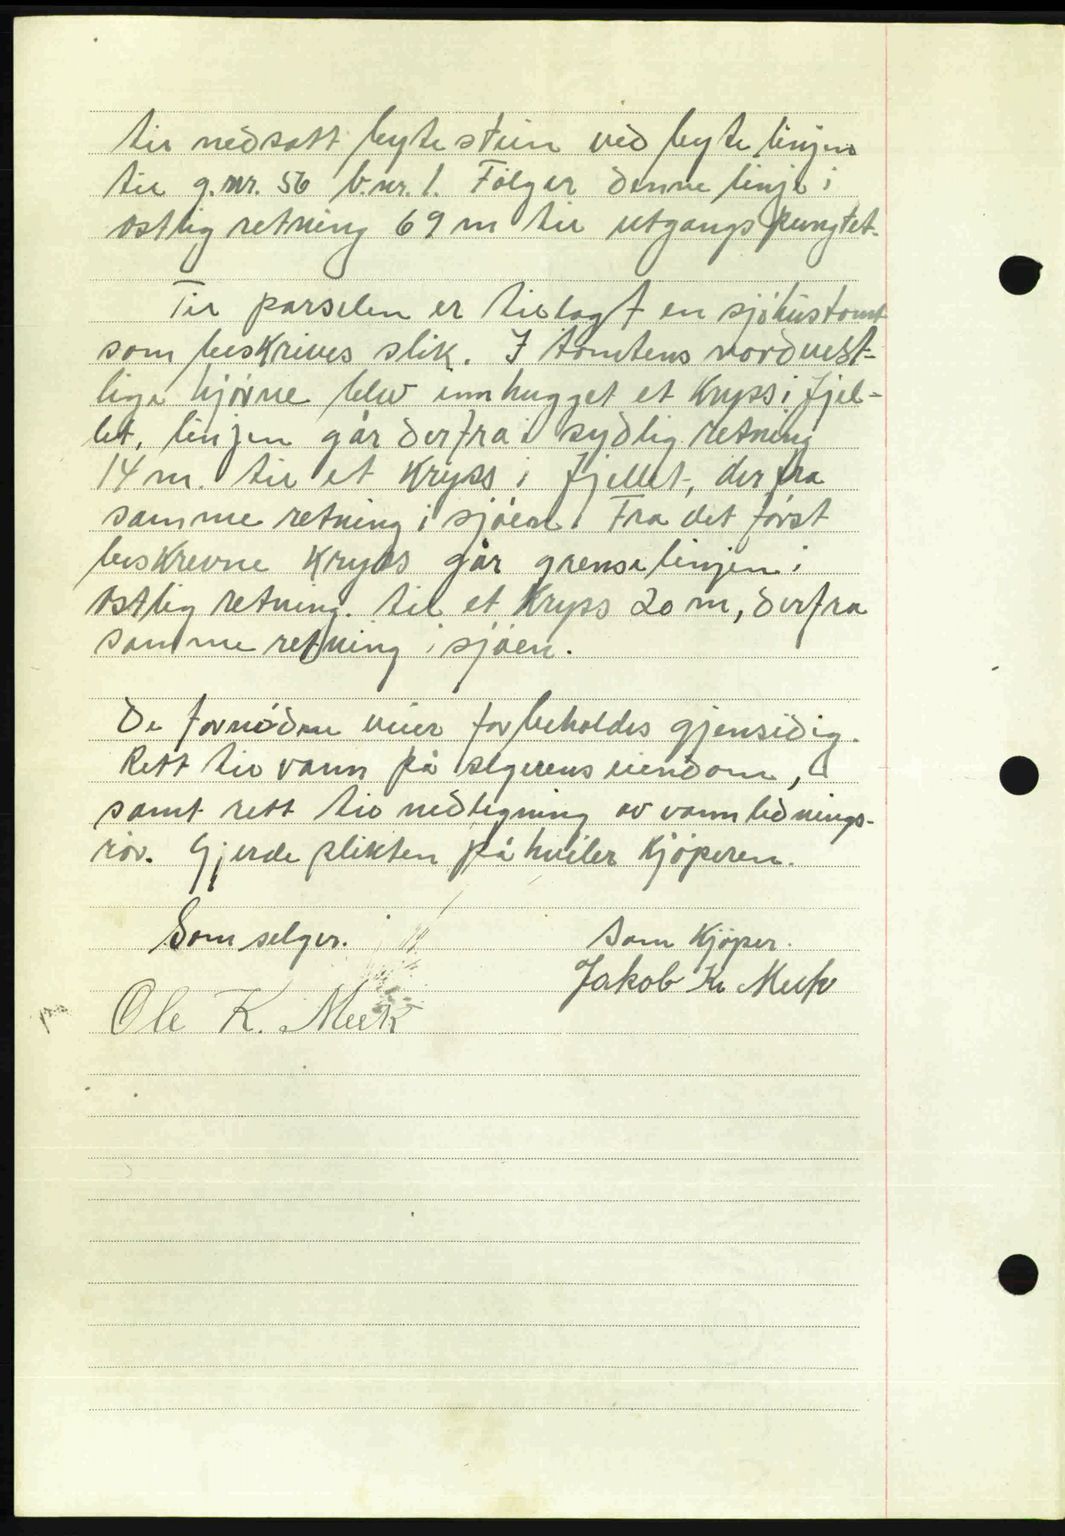 til nedsatt byte stein ved byte linjen
til g.nr. 56 b.nr. 1. Følger denne linje i
østlig retning 69 m til utgangspungtet.
Til parselen er tillagt en sjøhustomt
som beskrives slik. I tomtens nordvest-
lige hjørne blev innhugget et kryss i fjel-
let, linjen går derfra i sydlig retning
14 m. til et kryss i fjellet, derfra
samme retning i sjøen. Fra det først
beskrevne kryss går grenselinjen i
østlig retning. til et kryss 20 m, derfra
samme retning i sjøen.
De fornødne veier forbeholdes gjensidig.
Rett til vann på selgerens eiendom,
samt rett til nedlegning av vannlednings-
rör. Gjerde plikten på hviler kjøperen.
Som selger. Som Kjøper.
Jakob K. Meek
Ole K. Meek